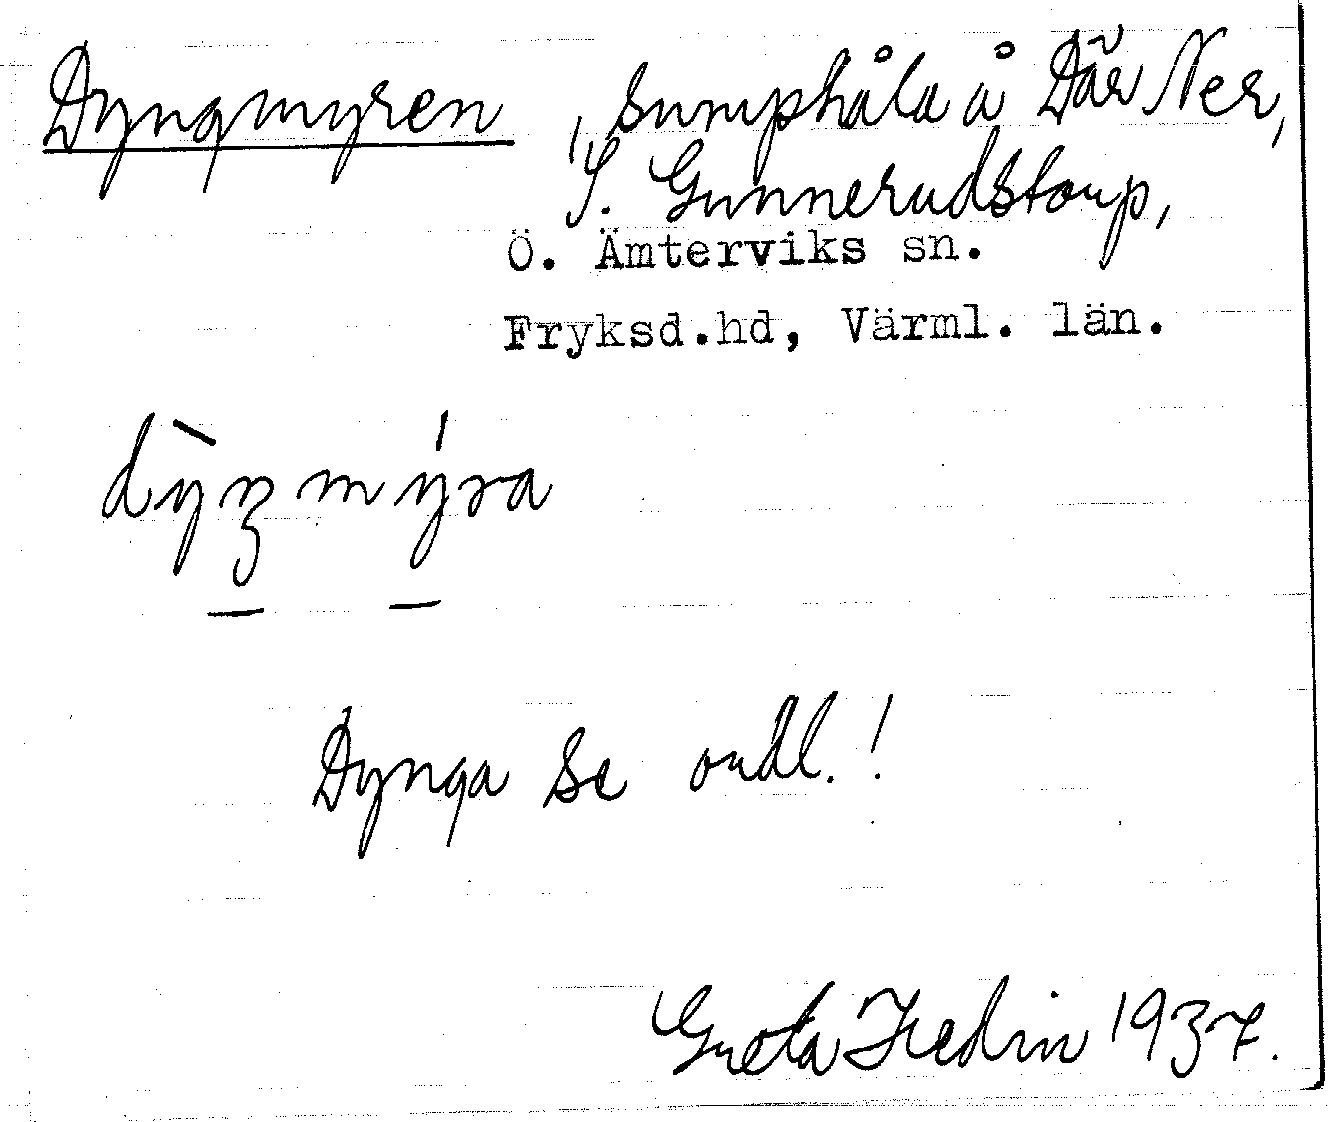 Dyngmyren, sumphåla å Där Ner,
S. Gunnerudstorp,
Ö. Ämterviks sn.
Fryksd.hd, Värml. län.
dỳŋmýra
Dynga se ordl.!
Greta Hedin 1937.